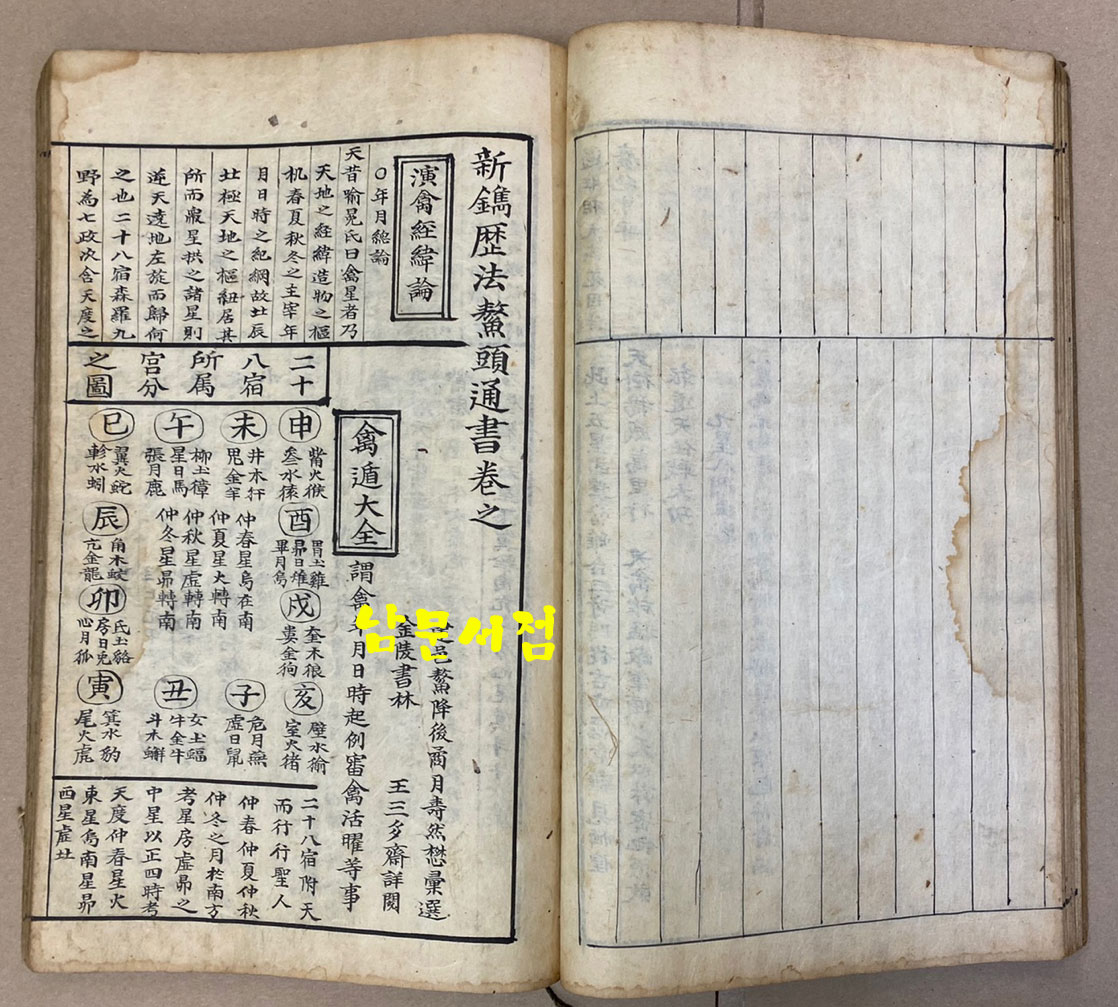 新鐫歴法鰲頭通書卷之
演禽經緯論
〇年月總論
天昔喻晃氏曰禽星者乃
天地之経緯造物之樞
机春夏秋冬之主宰年
月日時之紀綱故北辰
北極天地之樞紐居其
所而衆星拱之諸星則
逆天遶地左旋而歸何
之也二十八宿森羅九
野為七政次舍天度之
二十
八宿
所属
宮分
之圖
申
觜火猴
参水猿
未
井木犴
鬼金羊
午
柳土獐
星日馬
張月鹿
巳
翼火蛇
軫水蚓
酉
胃土雞
昴日雉
畢月烏
仲春星鳥在南
仲夏星火轉南
仲秋星虚轉南
仲冬星昴轉南
辰
角木蛟
亢金龍
戌
奎木狼
婁金狗
卯
氐土貉
房日兎
心月狐
亥
壁水㺄
室火猪
子
危月燕
虚日鼠
丑
女土蝠
牛金牛
斗木蠏
寅
箕水豹
尾火虎
二十八宿附天
而行行聖人
仲春仲夏仲秋
仲冬之月於南方
考星房虚昴之
中星以正四時考
天度仲春星火
東星鳥南星昴
西星虚北
禽遁大全
邑鰲降後喬月壽然懋彙選
金陵書林
王三多齋詳閱
謂禽年月日時起例審禽活曜等事
남문서점